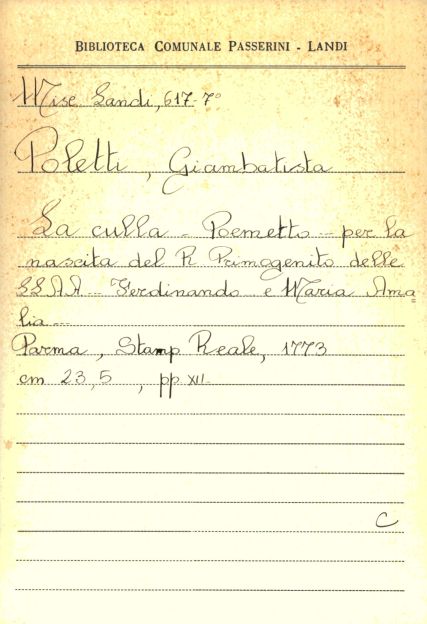 BIBLIOTECA COMUNALE PASSERINI - LANDI
Misc Landi, 617-7°
Poletti, Giambatista
La culla - Poemetto - per la
nascita del R Primogenito delle
SS AA - Ferdinando e Maria Ama
lia -
Parma, Stamp Reale, 1773
cm 23,5 , pp XII-
C